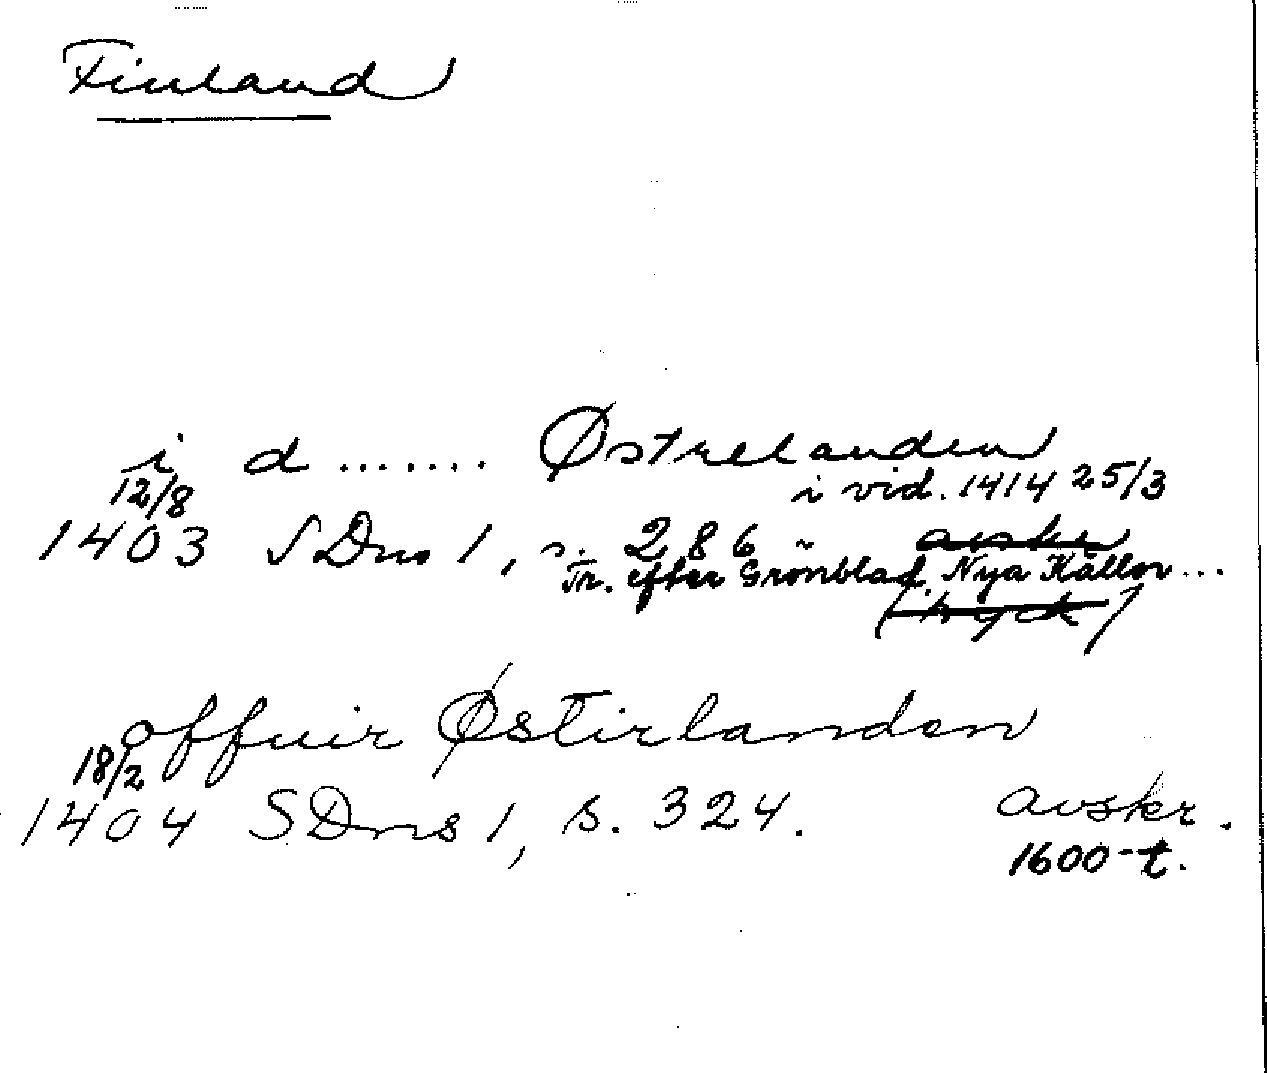 Finland
i d ....... Østrelanden
12/8 i vid. 1414 25/3
1403 SDns 1, s. 286 avskr
Tr. efter Grönblad, Nya Källor ...
(tryck)
offuir Østirlanden
18/2
1404 SDns 1, s. 324. avskr.
1600-t.